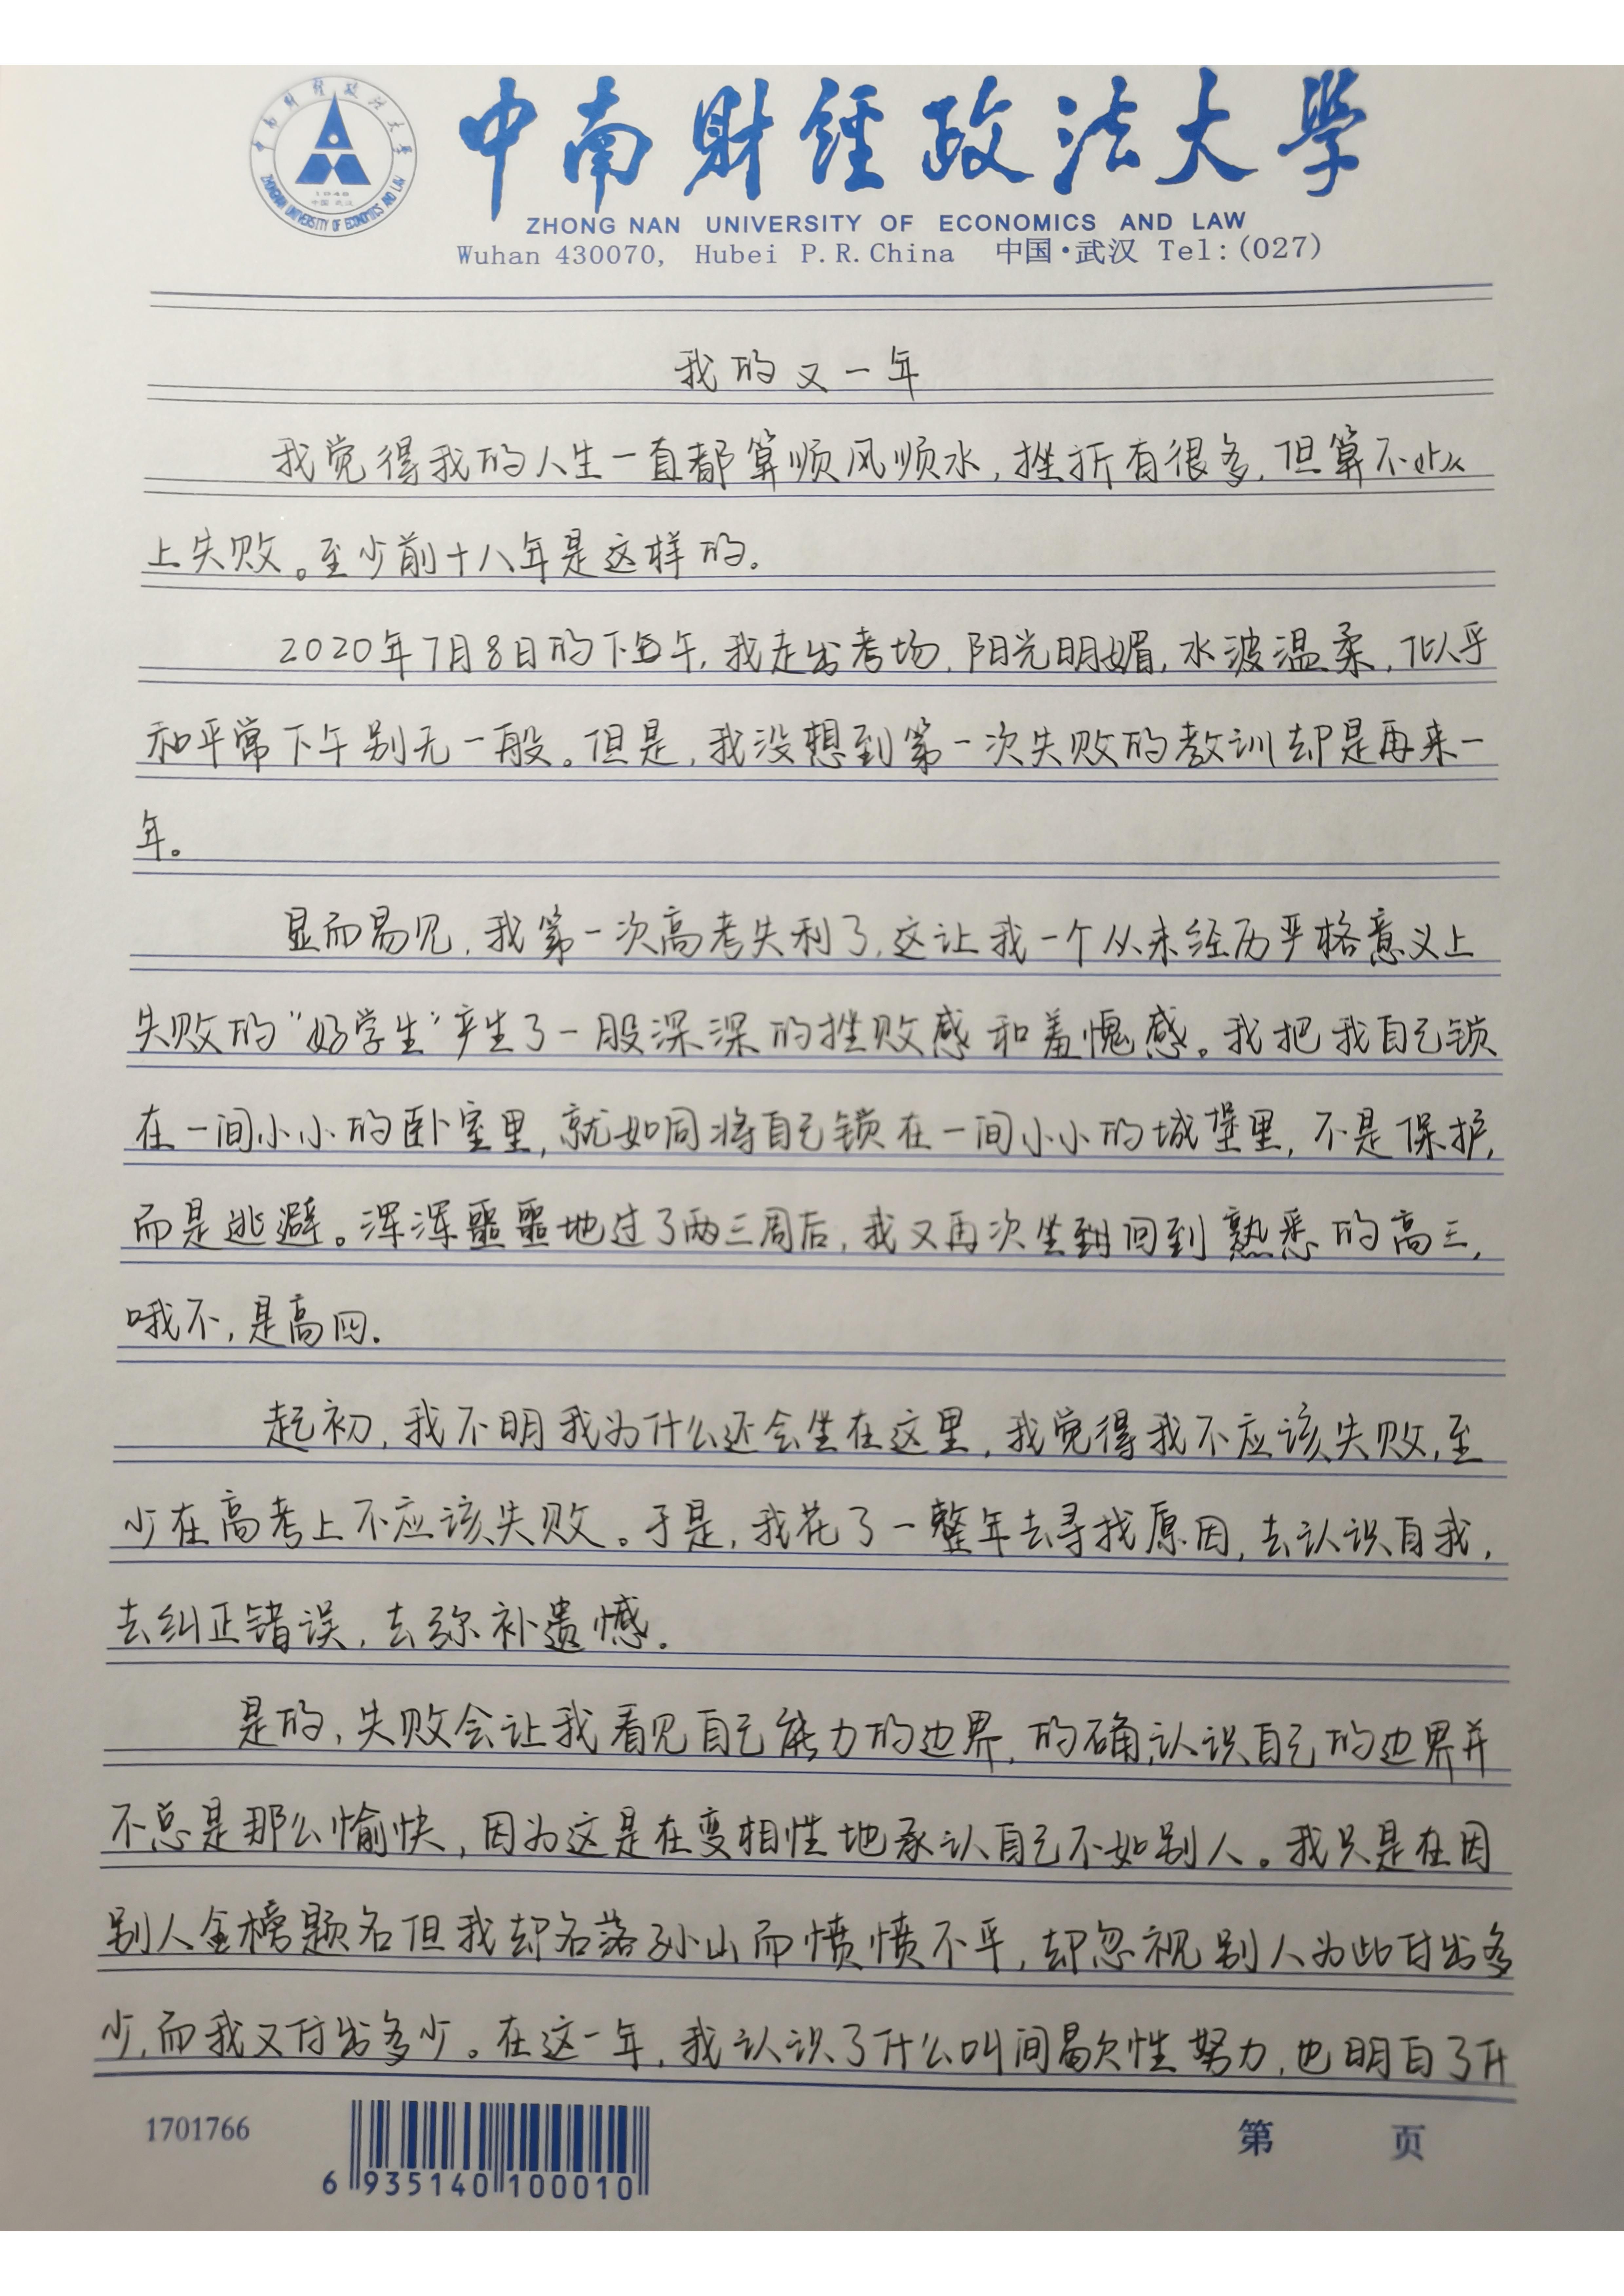 中南财经政法大学
ZHONG NAN UNIVERSITY OF ECONOMICS AND LAW
Wuhan 430070, Hubei P.R.China 中国·武汉 Tel:(027)
我的又一年
我觉得我的人生一直都算顺风顺水,挫折有很多,但算不
上失败。至少前十八年是这样的.
2020年7月8日的下午,我走出考场,阳光明媚,水波温柔,似乎
和平常下午别无一般。但是,我没想到第一次失败的教训却是再来一
年。
显而易见,我第一次高考失利了,这让我一个从未经历严格意义上
失败的"好学生"产生了一股深深的挫败感和羞愧感。我把我自己锁
在一间小小的卧室里,就如同将自己锁在一间小小的城堡里,不是保护,
而是逃避。浑浑噩噩地过了两三周后,我又再次回到熟悉的高三,
哦不,是高四.
起初,我不明我为什么还会坐在这里,我觉得我不应该失败,至
少在高考上不应该失败。于是,我花了一整年去寻找原因,去认识自我,
去纠正错误,去弥补遗憾.
是的,失败会让我看见自己能力的边界,的确,认识自己的边界并
不总是那么愉快,因为这是在变相性地承认自己不如别人。我只是在因
别人金榜题名但我却名落孙山而愤愤不平,却忽视别人为此付出多
少,而我又付出多少。在这一年,我认识了什么叫间曷欠性努力,也明白了什
1701766
6 935140 100010
第 页